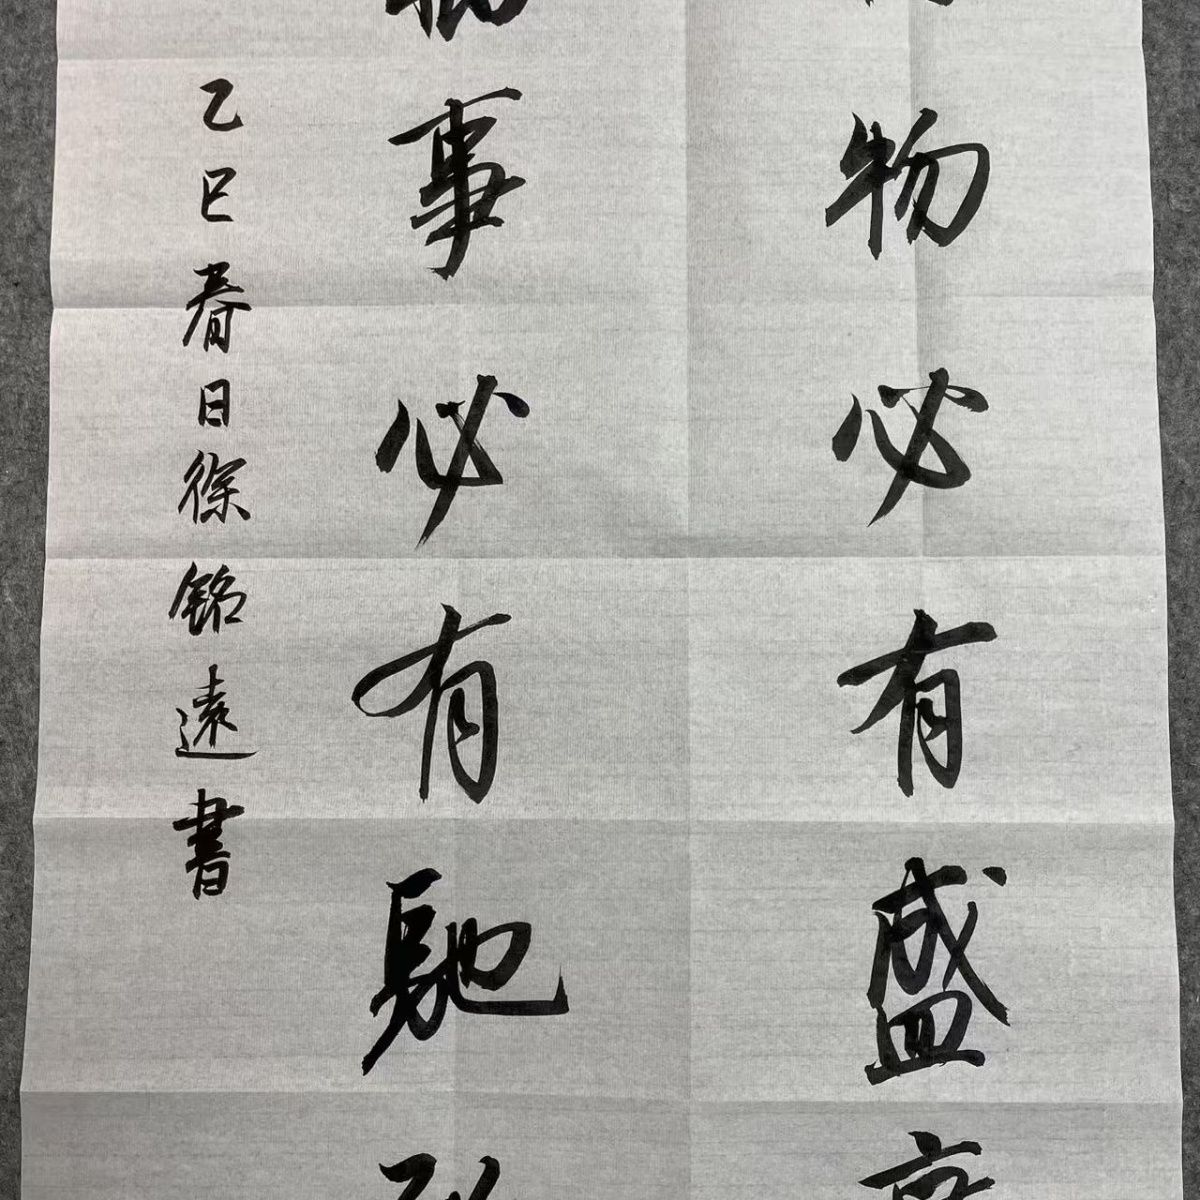 物必有盛
事必有馳
乙巳春日徐銘遠書